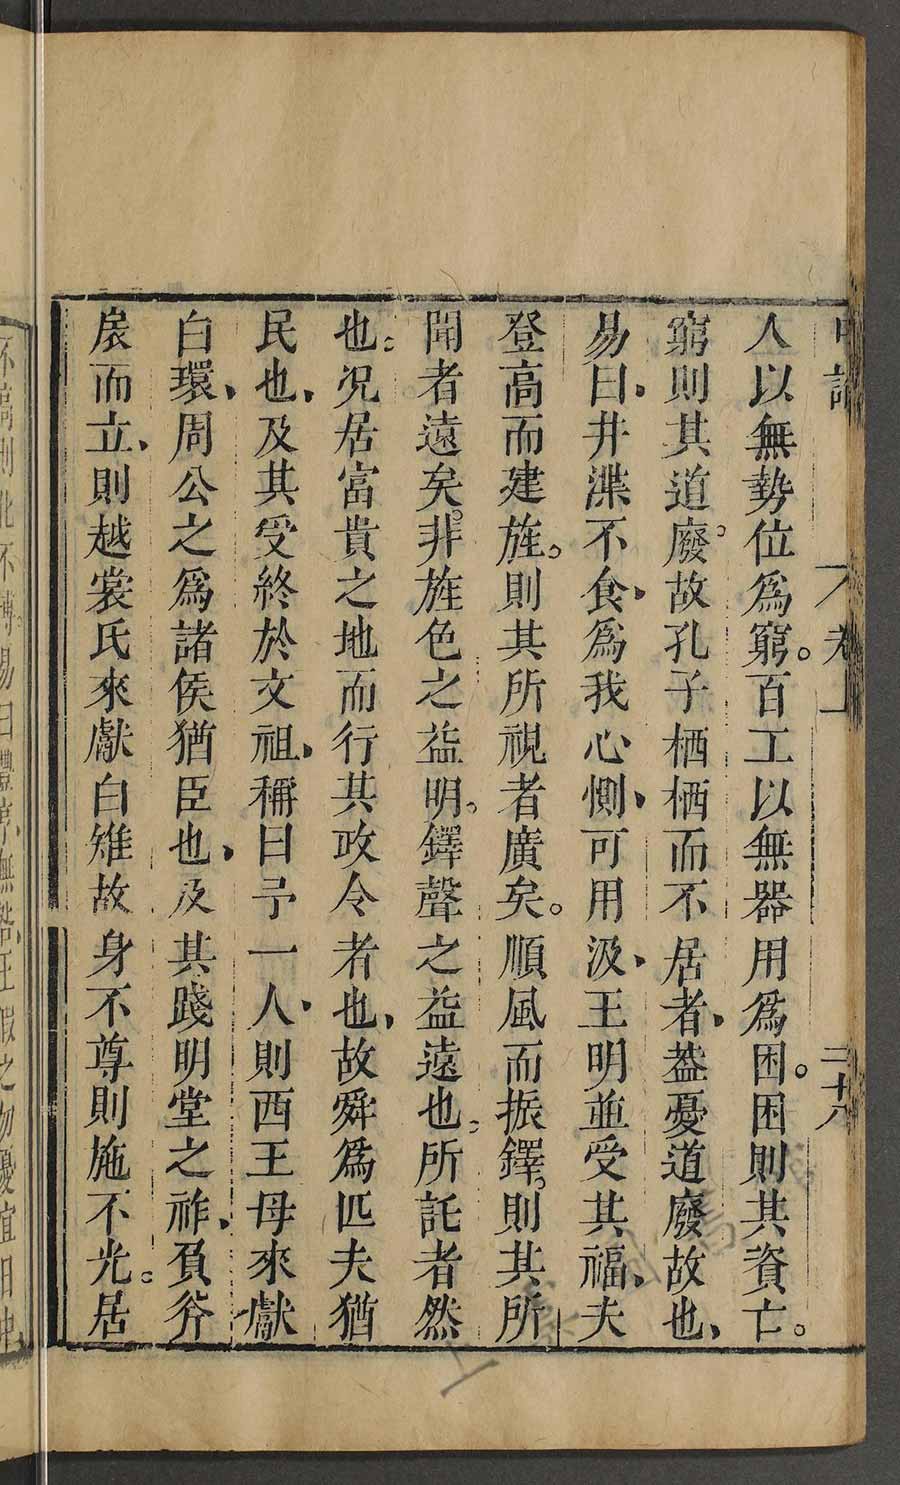 人以無勢位爲窮。百工以無器用爲困。困則其資亡。
窮則其道廢。故孔子栖栖而不居者、葢憂道廢故也、
易曰、井渫不食、爲我心惻、可用汲、王明並受其福、夫
登高而建旌。則其所視者廣矣。順風而振鐸。則其所
聞者遠矣。非旌色之益明。鐸聲之益遠也。所託者然
也。况居富貴之地而行其政令者也、故舜爲匹夫猶
民也、及其受終於文祖、稱曰予一人、則西王母來獻
白環、周公之爲諸侯猶臣也、及其踐明堂之祚、負斧
扆而立、則越裳氏來獻白雉故身不尊則施不光。居
卷上
二十八
不高則化不博易曰豐亨無咎王假之勿憂宜日中